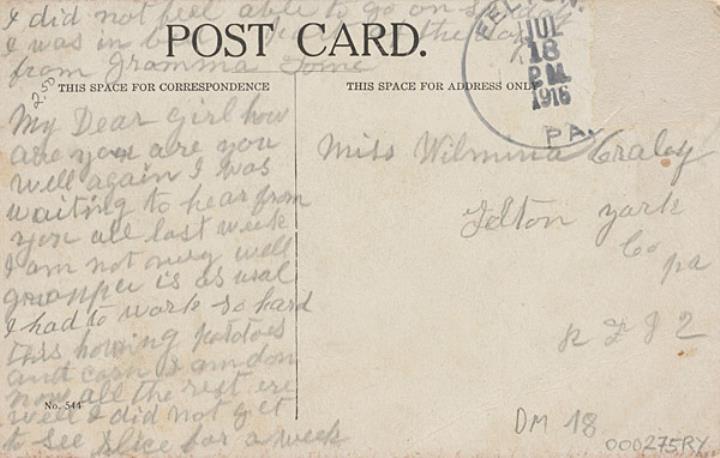 I did not feel able to go on Sunday
I was in bed of the day
from Gramma Tome
POST CARD.
THIS SPACE FOR CORRESPONDENCE
THIS SPACE FOR ADDRESS ONLY
FELTON.
JUL
18
PM
1916
PA.
2.50
My Dear Girl how
are you are you
well again I was
waiting to hear from
you all last week
I am not very well
grapper is as usal
I had to work so hard
this howing potatoes
and corn I am don
now all the rest ere
well I did not get
to see slice for a week
No. 544
Miss Wilmina Craley
Felton york
Co
pa
R F D 2
DM 18
000275RY